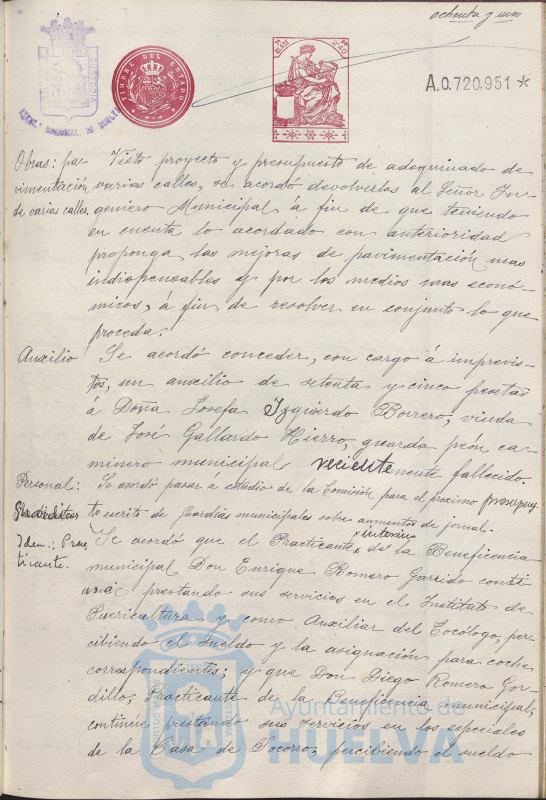 ochenta y uno
CUSTODIA
AYTO. MUNICIPAL DE HUELVA
TIMBRE DEL ESTADO
7ª CLASE
A.0.720,951 *
Obras: pa- Visto proyecto y presupuesto de adoquinado de
vimentación varias calles, se acordó devolverlos al Señor In-
de varias calles. geniero Municipal á fin de que teniendo
en cuenta lo acordado con anterioridad
proponga las mejoras de pavimentación mas
indispensables y por los medios mas econó-
micos, á fin de resolver en conjunto lo que
proceda.
Auxilio Se acordó conceder, con cargo á imprevis-
tos, un auxilio de setenta y cinco pesetas
á Doña Josefa Izquierdo Borrero, viuda
de José Gallardo Hierro, guarda peón ca-
minero municipal recientemente fallecido.
Personal: Se acordó pasar á estudio de la Comisión para el próximo presupues-
to escrito de Guardias municipales sobre aumentos de jornal.
Idem.: Prac- Se acordó que el Practicante interino de la Beneficencia
ticante. municipal Don Enrique Romero Garrido conti-
nué prestando sus servicios en el Instituto de
Puericultura y como Auxiliar del Tocólogo, per-
cibiendo el sueldo y la asignación para coche
correspondientes; y que Don Diego Romero Gor-
dillo, Practicante de la Beneficencia municipal,
continúe prestando sus servicios en los especiales
de la Casa de Socorro, percibiendo el sueldo
Ayuntamiento de
HUELVA